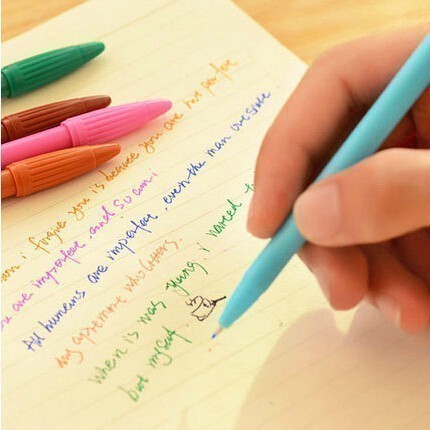 i forgive you is because you are not perfee
are imperfee. and so am i
All humens are imperfee. even the man outside
my apartment who litters.
when is was yung, i wanted to
but myself.